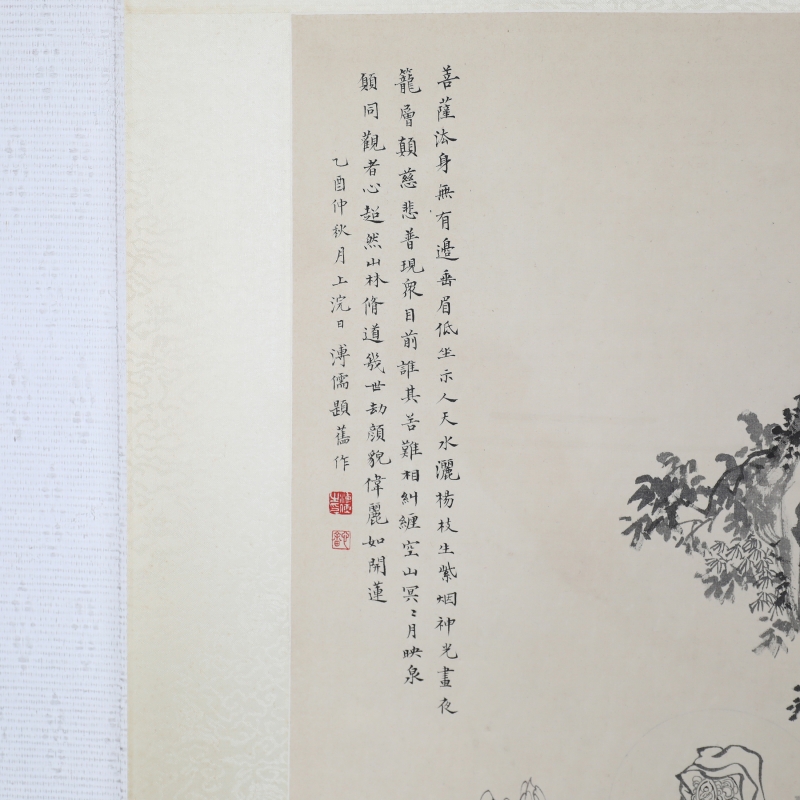 菩薩法身無有邊垂眉低坐示人天水灑楊枝生紫烟神光晝夜
籠層顛慈悲普現眾目前誰其苦難相糾纏空山冥〻月映泉
顛同觀者心超然山林脩道幾世劫顏貌偉麗如開蓮
乙酉仲秋月上浣日溥儒題舊作